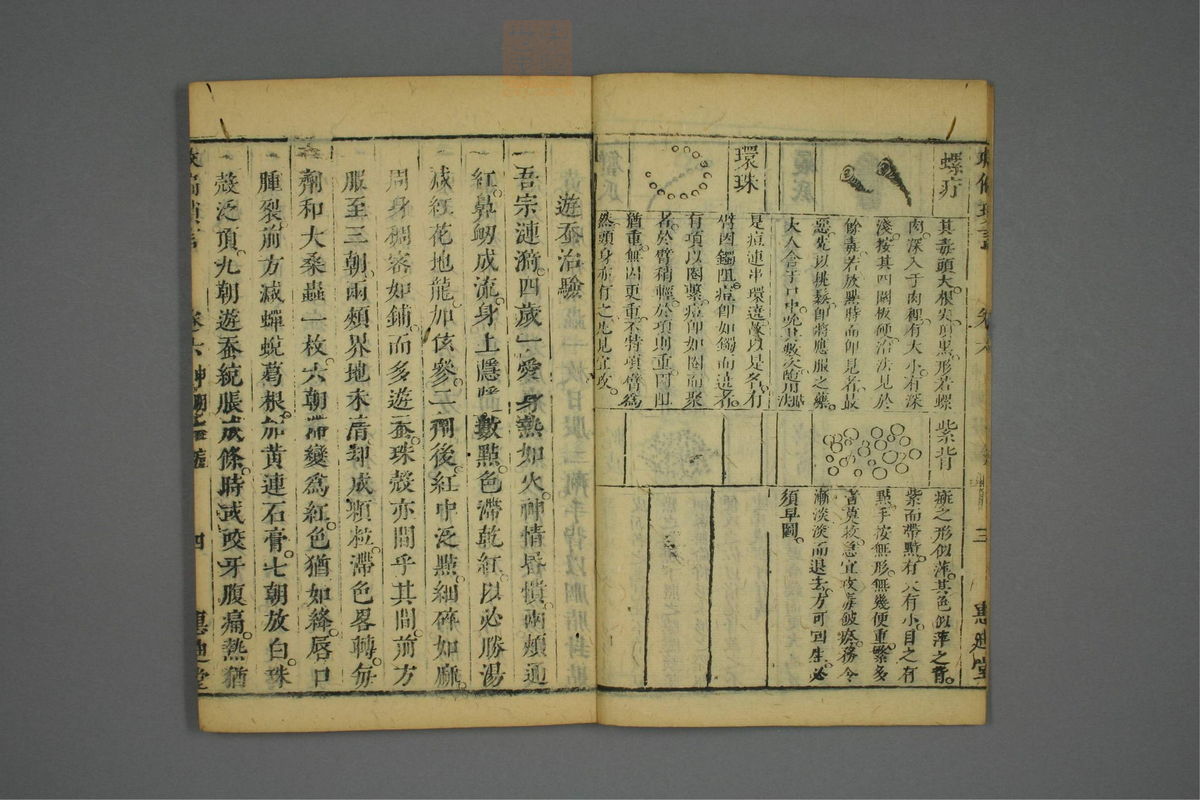 螺疔
其毒頭大根尖頂黑形若螺
肉深入于肉裡有大小有深
淺按其四圍板硬治法見於
餘毒若放點時而即見者最
惡先以挑鬆即將應服之藥
大人含于口中
環珠
是痘連串環遶故以是名有
臂因鐲阻痘即如鐲而遶者
有項以圈繫痘即如圈而聚
者於臂稍輕於項則重因阻
猶重無因更重不特項臂為
然頭身亦有之先見宜攻
紫背
斑之形似萍其色似萍之背
紫而帶點有大有小目之有
點手按無形無幾便重繁多
者莫救急宜攻毒敗瘀務令
漸淡淡而退去方可回生必
須早圖
三
惠迪堂
遊蚕治驗
一吾宗漣漪四歲一愛身熱如火神情昏憒兩頰通
紅鼻衂成流身上隱隱數點色滯乾紅以必勝湯
減紅花地龍加玄參二劑後紅中泛點細碎如麻
周身稠密如鋪而多遊蚕珠殼亦間乎其間前方
服至三朝兩頰界地未清却成顆粒滯色畧轉每
劑和大桑蟲一枚六朝滯變為紅色猶如絳唇口
腫裂前方減蟬蛻葛根加黃連石膏七朝放白珠
殼泛頂九朝遊蚕統脹成條時或咬牙腹痛熱猶
卷六
四
惠迪堂